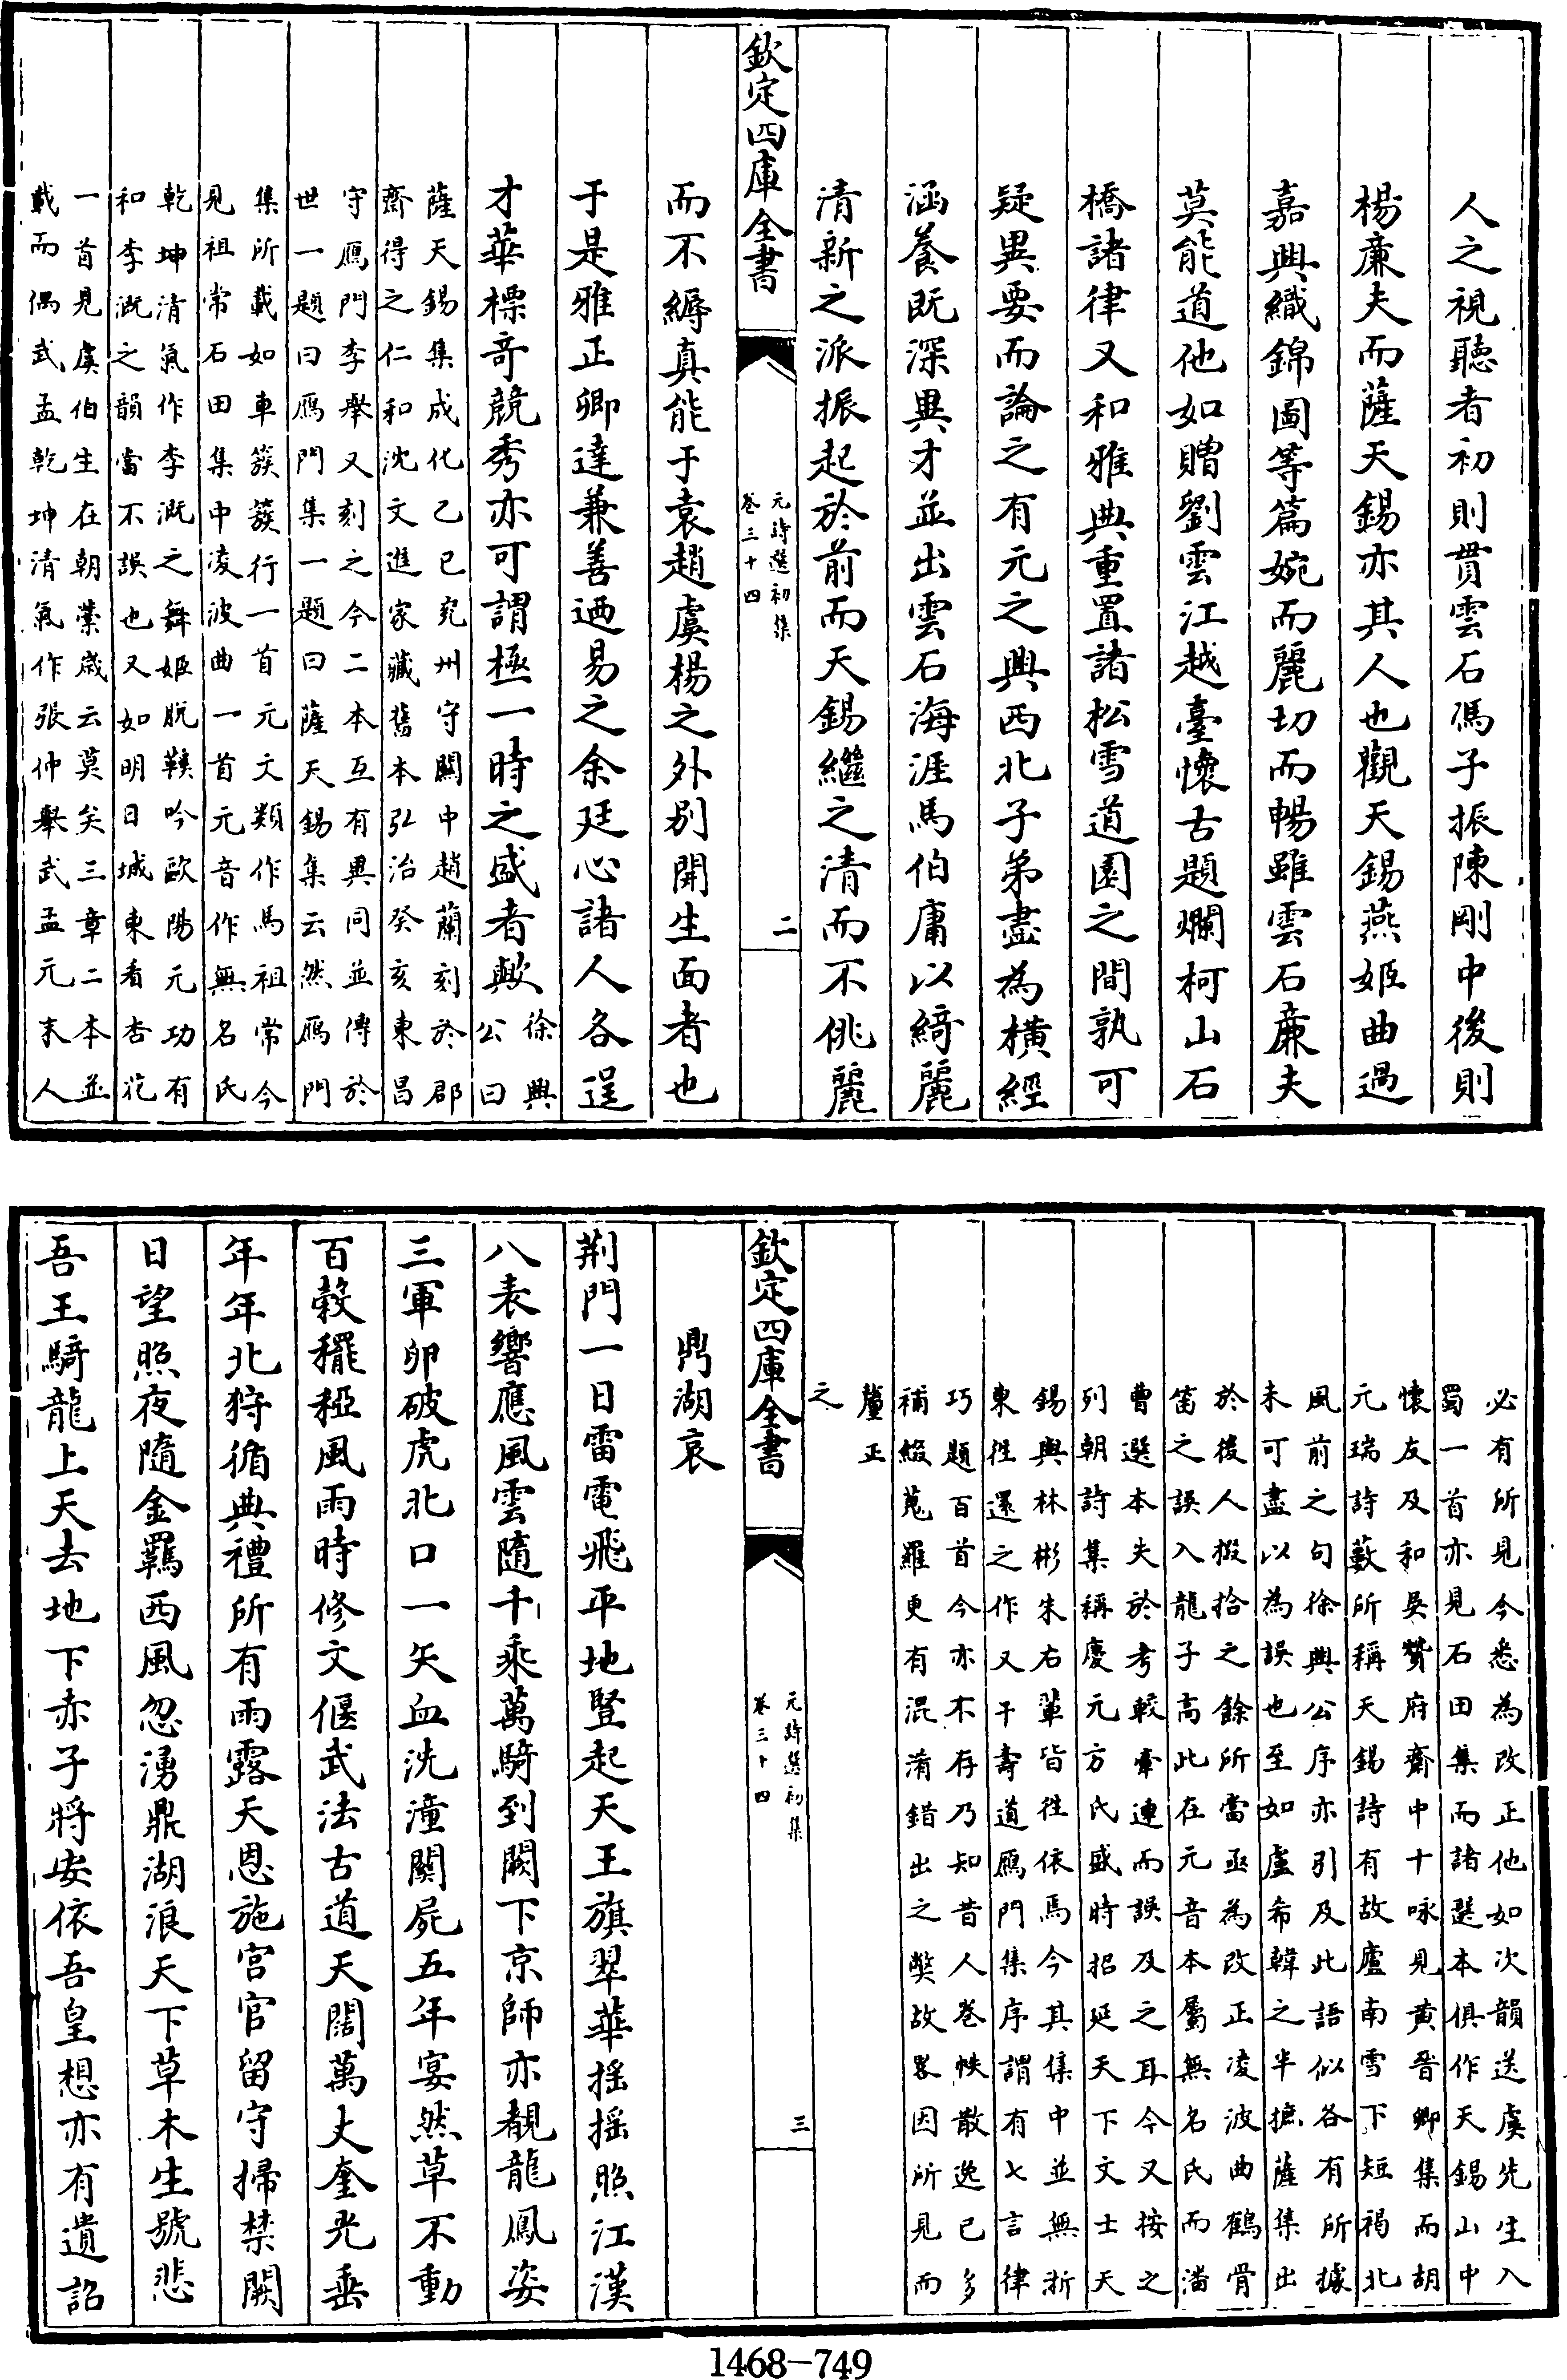 人之視聽者初則貫雲石馮子振陳剛中後則
楊廉夫而薩天錫亦其人也觀天錫燕姬曲過
嘉興織錦圖等篇婉而麗切而暢雖雲石廉夫
莫能道他如贈劉雲江越臺懷古題爛柯山石
橋諸律又和雅典重置諸松雪道園之間孰可
疑異要而論之有元之興西北子弟盡為橫經
涵養既深異才並出雲石海涯馬伯庸以綺麗
清新之派振起於前而天錫繼之清而不佻麗
欽定四庫全書
元詩選初集
卷三十四
二
而不縟真能于袁趙虞楊之外别開生面者也
于是雅正卿達兼善迺易之余廷心諸人各逞
才華標奇競秀亦可謂極一時之盛者歟
徐興
公曰
薩天錫集成化乙巳兖州守關中趙蘭刻於郡
齋得之仁和沈文進家藏舊本弘治癸亥東昌
守鴈門李舉又刻之今二本互有異同並傳於
世一題曰鴈門集一題曰薩天錫集云然鴈門
集所載如車簇簇行一首元文類作馬祖常今
見祖常石田集中凌波曲一首元音作無名氏
乾坤清氣作李溉之舞姬脱鞵吟歐陽元功有
和李溉之韻當不誤也又如明日城東看杏花
一首見虞伯生在朝藁嵗云莫矣三章二本並
載而偶武孟乾坤清氣作張仲舉武孟元末人
必有所見今悉為改正他如次韻送虞先生入
蜀一首亦見石田集而諸選本俱作天錫山中
懷友及和吳贊府齋中十咏見黄晉卿集而胡
元瑞詩藪所稱天錫詩有故廬南雪下短褐北
風前之句徐興公序亦引及此語似各有所據
未可盡以為誤也至如盧希韓之半摭薩集出
於後人掇拾之餘所當亟為改正凌波曲鶴骨
笛之誤入龍子高此在元音本屬無名氏而潘
曹選本失於考較牽連而誤及之耳今又按之
列朝詩集稱慶元方氏盛時招延天下文士天
錫與林彬朱右輩皆徃依焉今其集中並無折
東徃還之作又干壽道鴈門集序謂有七言律
巧題百首今亦不存乃知昔人卷帙散逸已多
補綴蒐羅更有混淆錯出之弊故畧因所見而
釐正
之
欽定四庫全書
元詩選初集
卷三十四
三
鼎湖哀
荆門一日雷電飛平地豎起天王旗翠華摇摇照江漢
八表響應風雲隨千乘萬騎到闕下京師亦覩龍鳳姿
三軍卵破虎北口一矢血洗潼關屍五年宴然草不動
百榖䆉稏風雨時修文偃武法古道天闊萬丈奎光垂
年年北狩循典禮所有雨露天恩施宫官留守掃禁闕
日望照夜隨金羈西風忽湧鼎湖浪天下草木生號悲
吾王騎龍上天去地下赤子將安依吾皇想亦有遺詔
1468-749